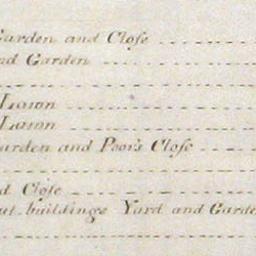 Garden and Close
and Garden
Lawn
Lawn
Garden and Poor's Close
d Close
out-buildings Yard and Garde